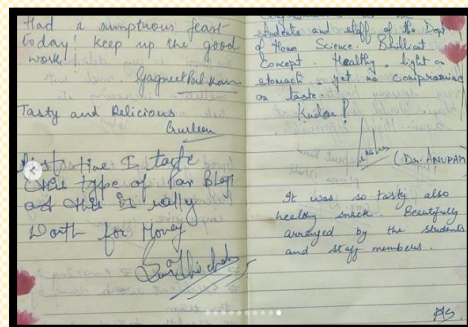 Had a sumptuous feast
today! keep up the good
work.
Tasty and Delicious
First time I taste
this type of
this is really
worth for Money
students and staff of the Dept
of Home Science. Brilliant
Concept. Healthy, light on
stomach yet no compromise
on taste.
(Dr. ANUPAM)
It was so tasty also
healthy snack. Beautifully
arranged by the students
and staff members.